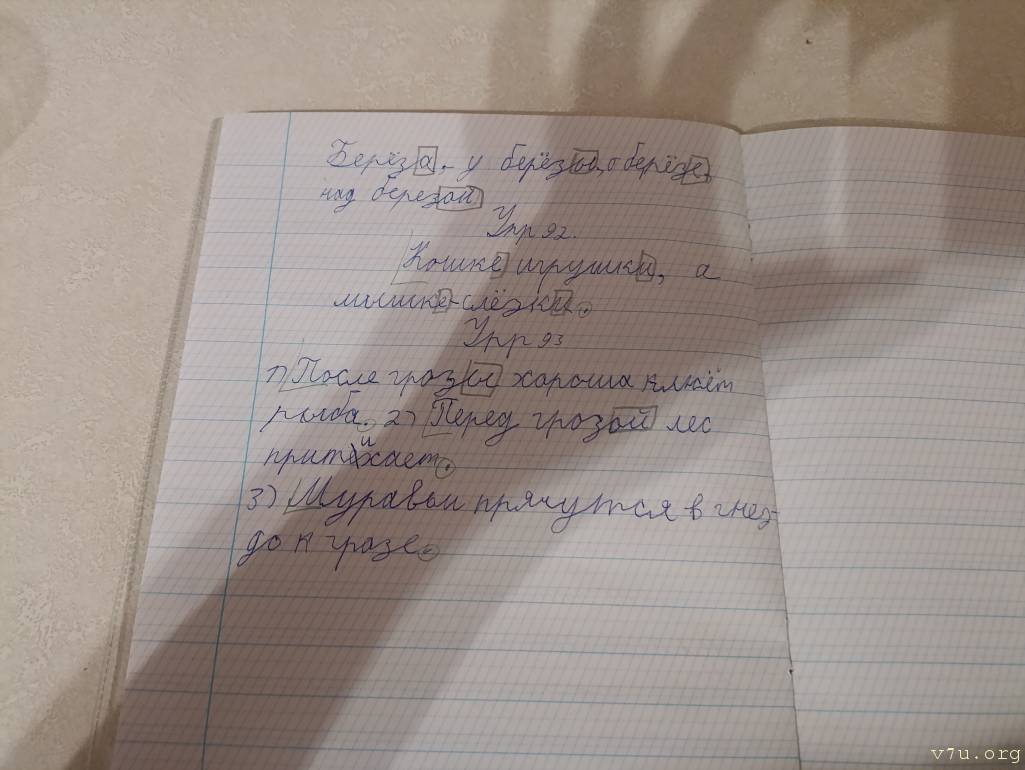 Берёза, - у берёзы, о берёзе,
над березой
Упр 92.
Кошке игрушки, а
мышке-слёзки.
Упр 93
1) После грозы хороша клюёт
рыба. 2) Перед грозой лес
притихает.
3) Муравьи прячутся в гнез-
до к грозе.
v7u.org